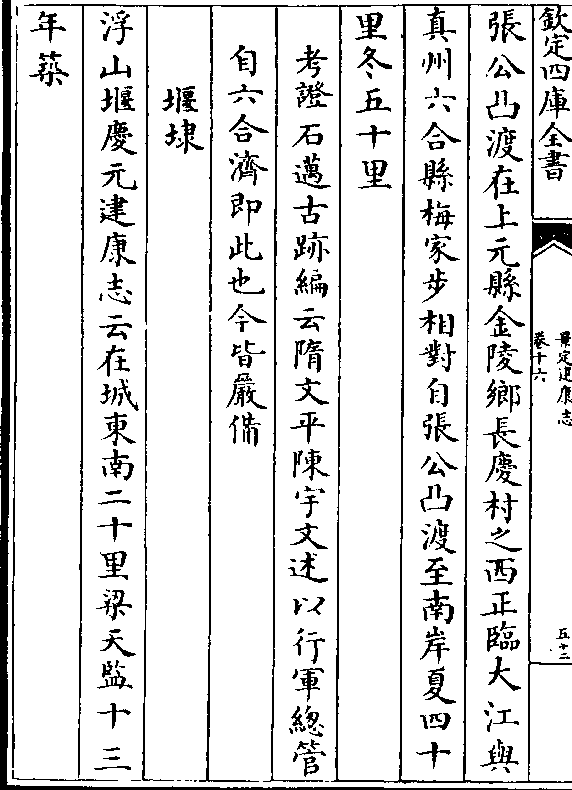 欽定四庫全書
景定建康志
卷十六
五十二
張公凸渡在上元縣金陵鄉長慶村之西正臨大江與
真州六合縣梅家步相對自張公凸渡至南岸夏四十
里冬五十里
考證石邁古跡編云隋文平陳宇文述以行軍總管
自六合濟即此也今皆嚴備
堰埭
浮山堰慶元建康志云在城東南二十里梁天監十三
年築